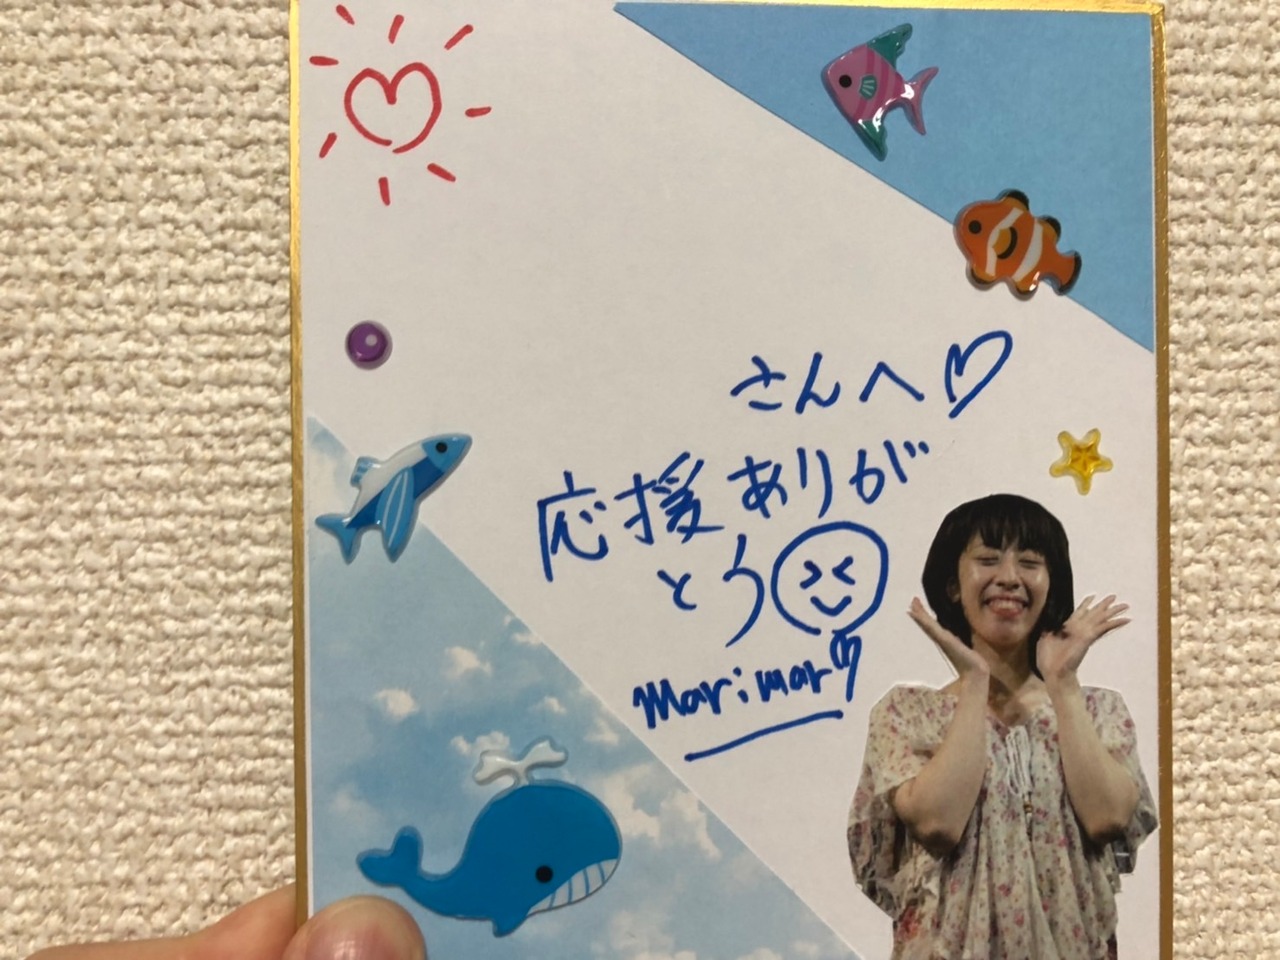 さんへ♡
応援ありが
とう
marimar♡